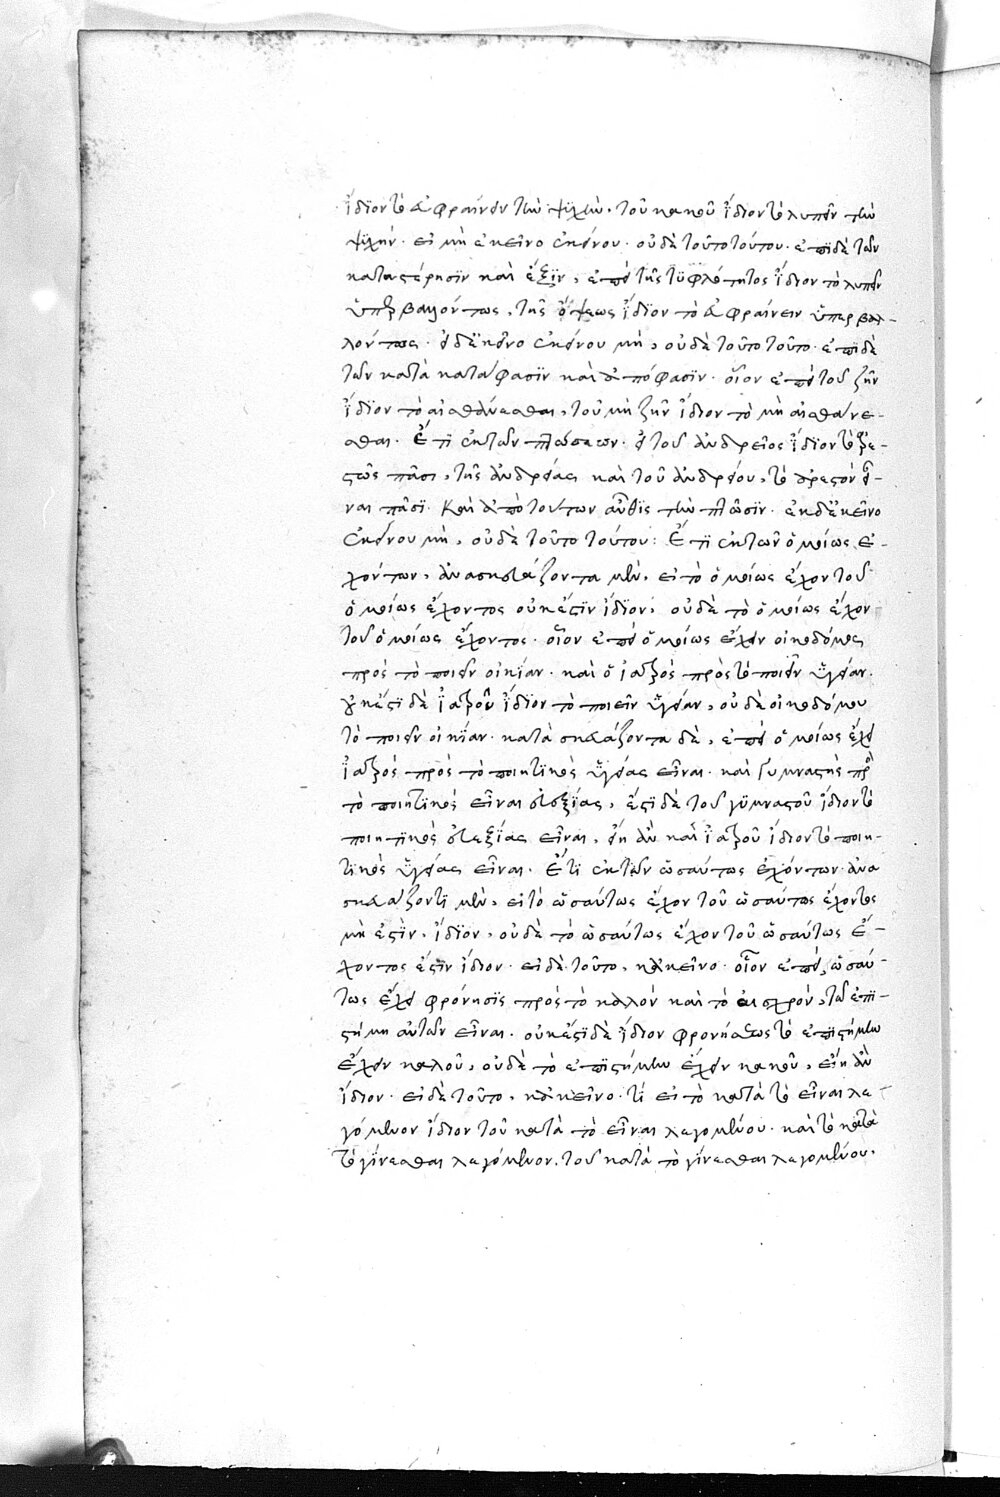 ἴδϊον τὸ εὐφραίνειν τὴν ψϋχὴν, τοῦ κακοῦ ἴδιον τὸ λυπεῖν τὴν
ψϋχήν· εἰ μὴ ἐκεῖνο ἐκείνου· οὐδὲ τοῦτο τούτου· ἐπϊ δὲ τῶν
κατα στέρησϊν καὶ ἕξϊν, ἐπεὶ τῆς τϋφλότητος ἴδιον τὸ λυπεῖν
ὑπερβαλλόντως, τῆς ὄψεως ἴδϊον τὸ εὐφραίνειν ὑπερβαλ-
λόντως· εἰ δὲ κεῖνο ἐκείνου μὴ, οὐδὲ τοῦτο τοῦτο· ἐπϊ δὲ
τῶν κατὰ κατάφασϊν καὶ ἀπόφασϊν· οἷον ἐπεὶ τοῦ ζῆν
ἴδϊον τὸ αἰσθάνεσθαι, τοῦ μὴ ζῆν ἴδιον τὸ μὴ αἰσθάνε-
σθαι· Ἔτϊ ἐκ τῶν πτώσεων· εἰ τοῦ ἀνδρεῖος ἴδϊον τὸ ἀρε-
στῶς πᾶσι, τῆς ἀνδρείας καὶ τοῦ ἀνδρείου, τὸ ἀρεστὸν εἶ-
ναι πᾶσϊ· Καὶ ἀπὸ τούτων αὖθϊς τὴν πτῶσϊν· εἰ δὲ κεῖνο
ἐκείνου μὴ, οὐδὲ τοῦτο τούτου: Ἔτϊ ἐκ τῶν ὁμοίως ἐ-
χόντων, ἀνασκευάζοντα μὲν, εἰ τὸ ὁμοίως ἔχον τοῦ
ὁμοίως ἔχοντος οὐκ ἔστϊν ἴδϊον, οὐδὲ τὸ ὁμοίως ἔχον
τοῦ ὁμοίως ἔχοντος· οἷον ἐπεὶ ὁμοίως ἔχειν οἰκοδόμος
πρὸς τὸ ποιεῖν οἰκίαν· καὶ ὁ ἰατρὸς πρὸς τὸ ποιεῖν ὑγείαν·
οὐκ ἔστϊ δὲ ἰατροῦ ἴδϊον τὸ ποιεῖν ὑγείαν, οὐδὲ οἰκοδόμου
τὸ ποιεῖν οἰκίαν· κατασκευάζοντα δὲ, ἐπεὶ ὁμοίως ἔχει
ἰατρὸς πρὸς τὸ ποιητϊκὸς ὑγείας εἶναι· καὶ γυμναστὴς πρὸς
τὸ ποιητϊκὸς εἶναι εὐεξίας, ἔστϊ δὲ τοῦ γϋμναστοῦ ἴδιον τὸ
ποιητϊκὸς εὐεξίας εἶναι, εἴη ἂν καὶ ἰατροῦ ἴδιον τὸ ποιη-
τϊκὸς ὑγείας εἶναι· Ἔτϊ ἐκ τῶν ὡσαύτως ἐχόντων· ἀνα
σκευάζοντϊ μὲν, εἰ τὸ ὡσαύτως ἔχον τοῦ ὡσαύτως ἔχοντος
μὴ ἐστϊν· ἴδϊον, οὐδὲ τὸ ὡσαύτως ἔχον τοῦ ὡσαύτως ἔ-
χοντος ἔστϊν ἴδιον· εἰ δὲ τοῦτο, κἀκεῖνο· οἷον ἐπεὶ, ὡσαύ-
τως ἔχει φρόνησϊς πρὸς τὸ καλὸν καὶ τὸ αἰσχρὸν, τῶ ἐπϊ-
στήμη αὐτῶν εἶναι· οὐκ ἔστϊ δὲ ἴδιον φρονήσεως τὸ ἐπϊστήμην
ἔχειν καλοῦ, οὐδὲ τὸ ἐπϊστήμην ἔχειν κακοῦ, εἴη ἂν
ἴδιον· εἰ δὲ τοῦτο, κἀκεῖνο· τϊ εἰ τὸ κατὰ τὸ εἶναι λε-
γόμενον ἴδιον τοῦ κατὰ τὸ εἶναι λεγομένου· καὶ τὸ κατὰ
τὸ γίνεσθαι λεγόμενον, τοῦ κατὰ τὸ γίνεσθαι λεγομένου,